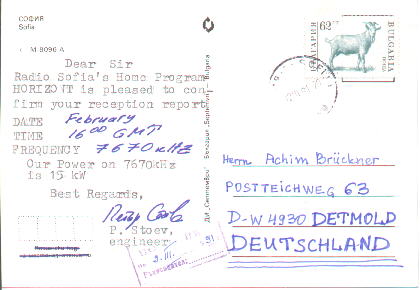 СОФИЯ
Sofia
M 8096 A
Dear Sir
Radio Sofia's Home Program
HORIZONT is pleased to con
firm your reception report
DATE February
TIME 16 00 GMT
FREQUENCY 7670 kHz
Our Power on 7670kHz
is 15 kW
Best Regards,
P. Stoev,
engineer
62
БЪЛГАРИЯ
BULGARIA
Herrn Achim Brückner
POSTTEICHWEG 63
D-W 4930 DETMOLD
DEUTSCHLAND